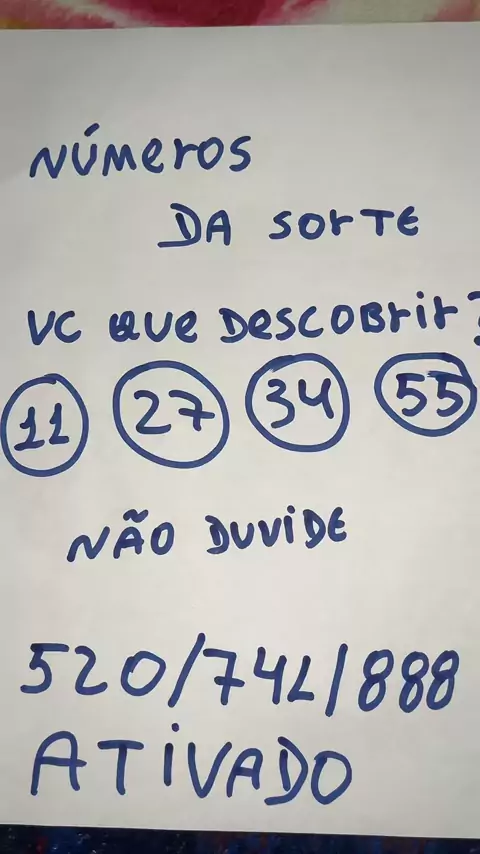 NÚMEROS
DA SORTE
VC QUE DESCOBRIR?
11 27 34 55
NÃO DUVIDE
520/741/888
ATIVADO